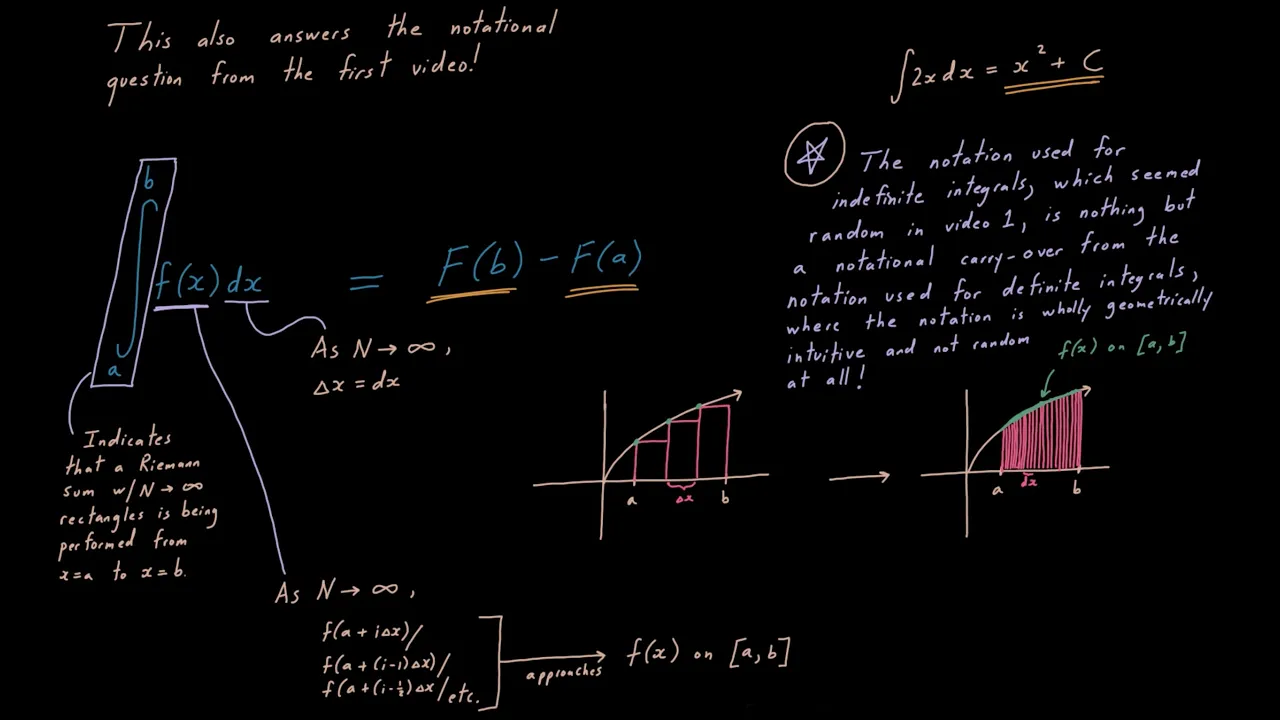 This also answers the notational
question from the first video!
∫2x dx = x² + C
The notation used for
indefinite integrals, which seemed
random in video 1, is nothing but
a notational carry-over from the
notation used for definite integrals,
where the notation is wholly geometrically
intuitive and not random
at all!
b
∫ f(x) dx = F(b) - F(a)
a
As N → ∞,
Δx = dx
Indicates
that a Riemann
sum w/ N → ∞
rectangles is being
performed from
x=a to x=b.
a Δx b
f(x) on [a, b]
a dx b
As N → ∞,
f(a + iΔx)/
f(a + (i-1)Δx)/
f(a + (i-½)Δx/etc.
approaches
f(x) on [a, b]